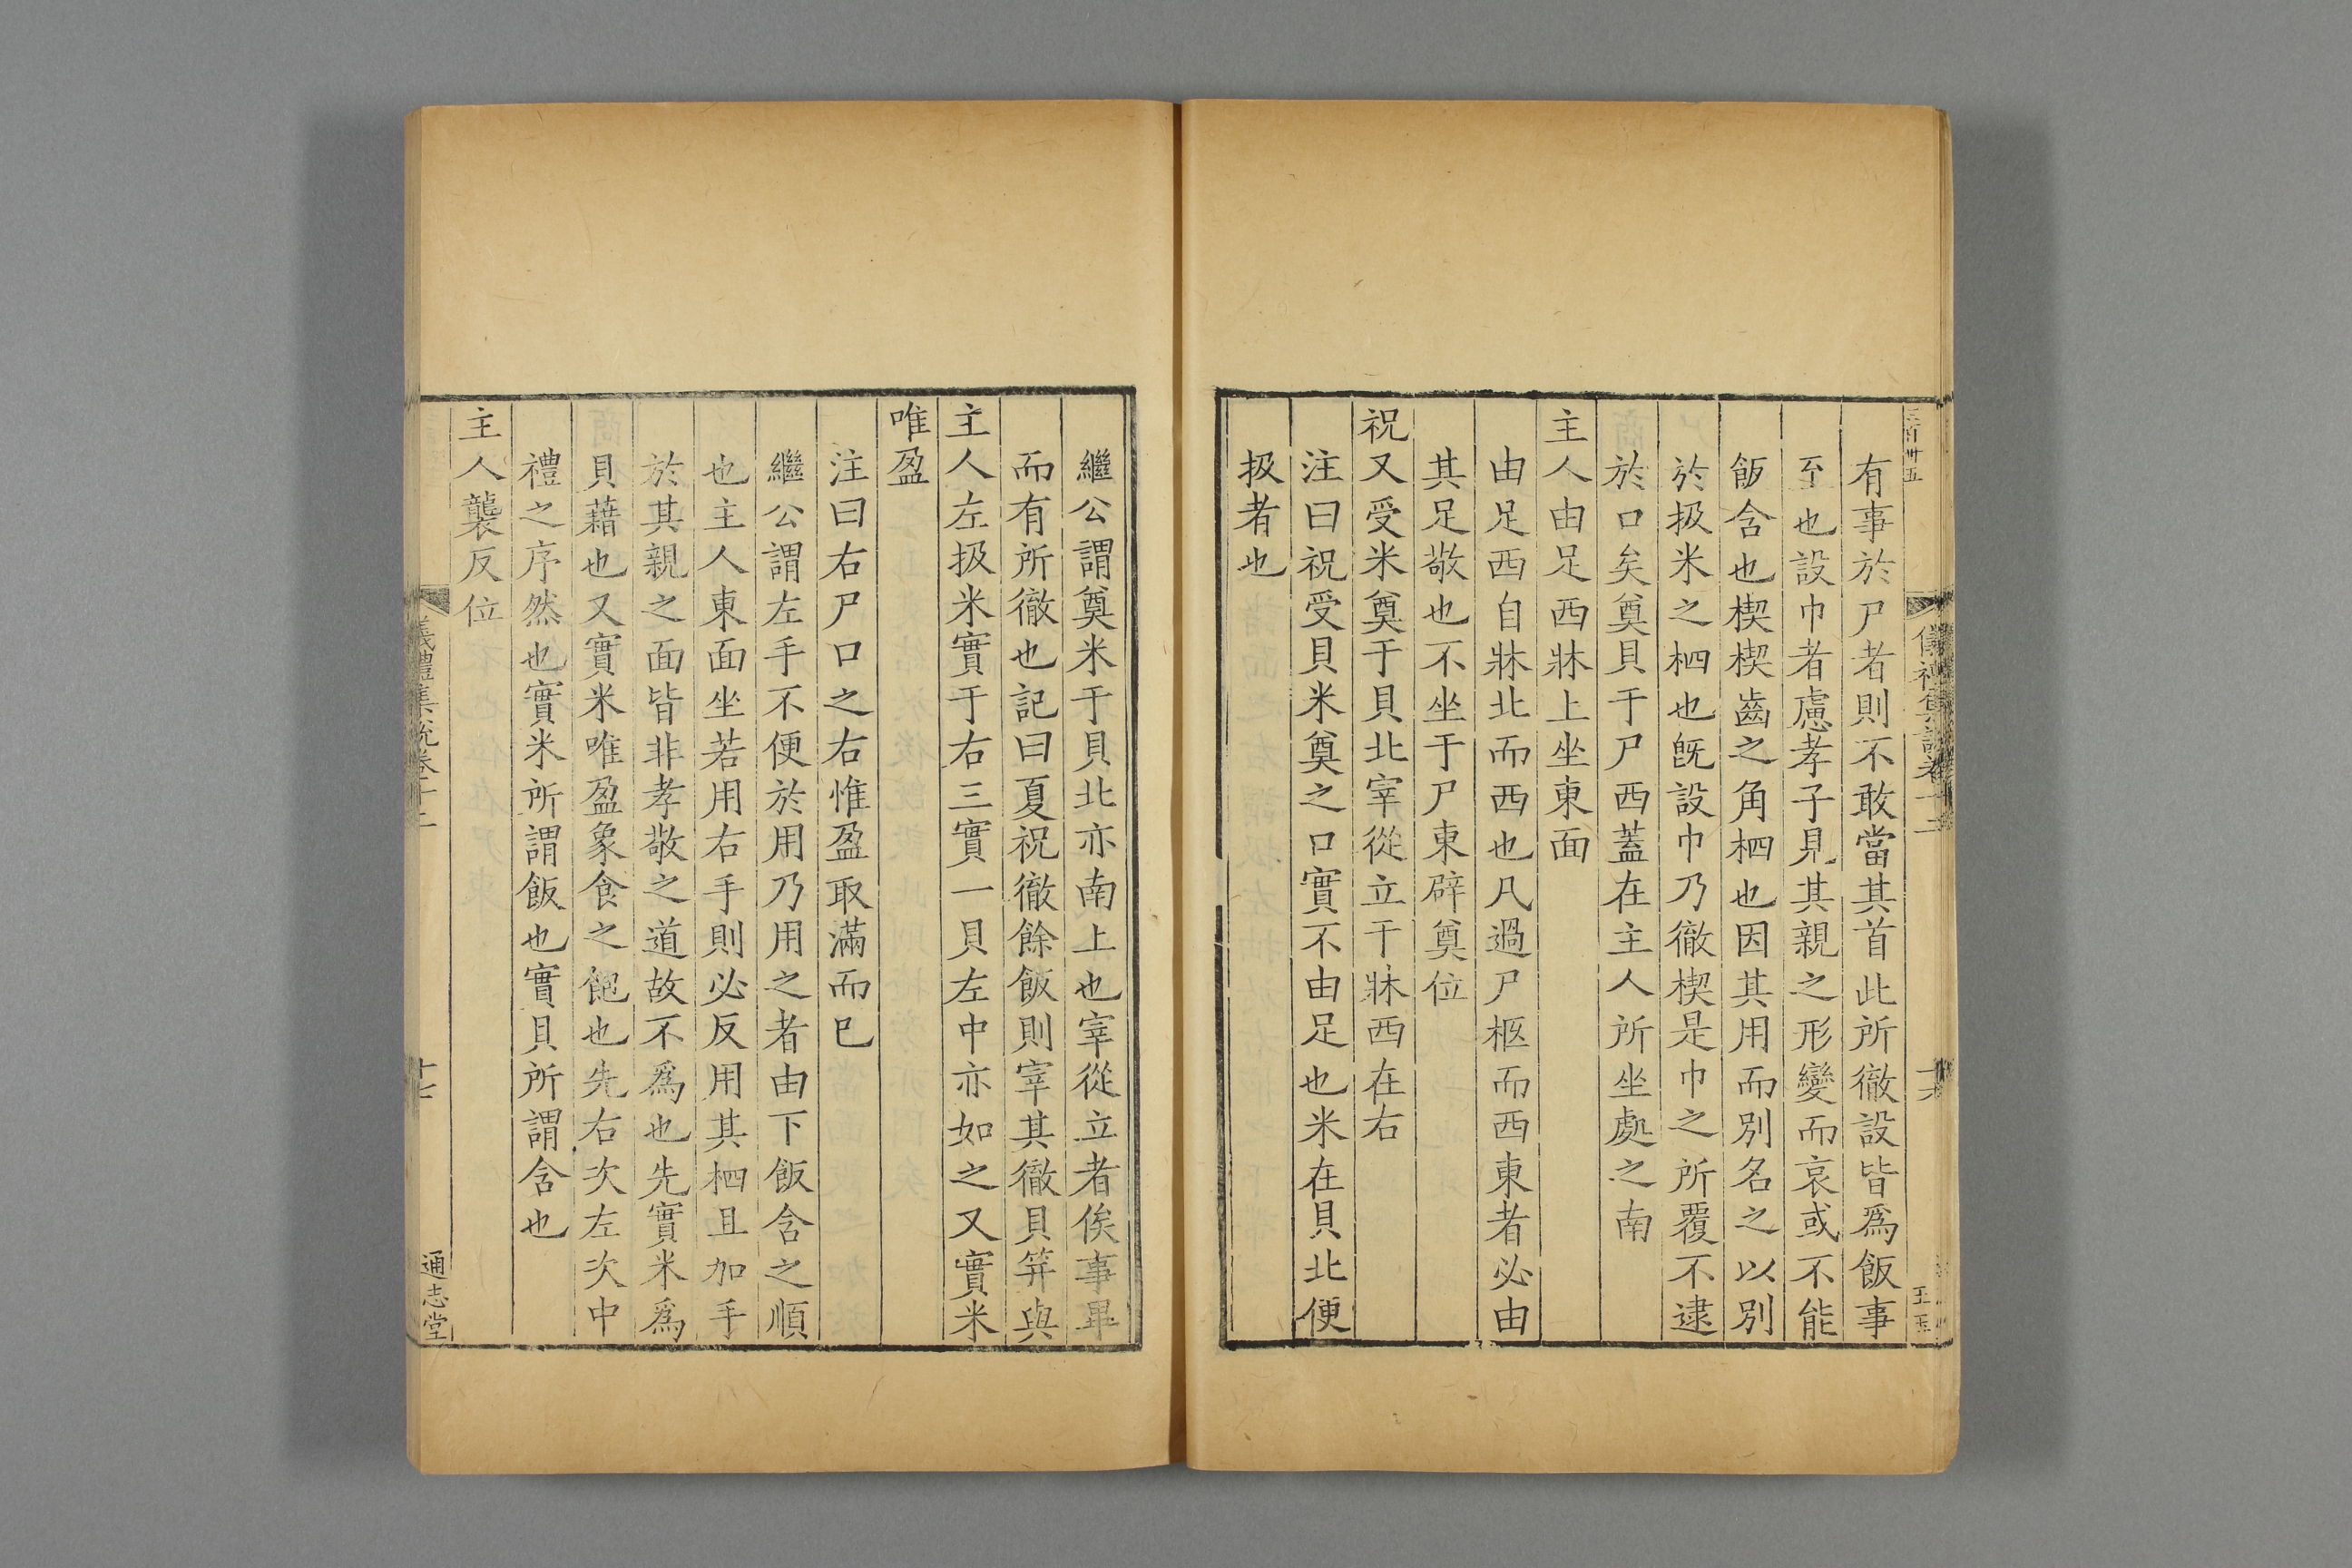 有事於尸者則不敢當其首此所徹設皆爲飯事
至也設巾者慮孝子見其親之形變而哀或不能
飯含也楔楔齒之角柶也因其用而別名之以別
於扱米之柶也旣設巾乃徹楔是巾之所覆不逮
於口矣奠貝于尸西蓋在主人所坐處之南
主人由足西牀上坐東面
由足西自牀北而西也凡過尸柩而西東者必由
其足敬也不坐于尸東辟奠位
祝又受米奠于貝北宰從立于牀西在右
注曰祝受貝米奠之口實不由足也米在貝北便
扱者也
繼公謂奠米于貝北亦南上也宰從立者俟事畢
而有所徹也記曰夏祝徹餘飯則宰其徹貝笄與
主人左扱米實于右三實一貝左中亦如之又實米
唯盈
注曰右尸口之右惟盈取滿而已
繼公謂左手不便於用乃用之者由下飯含之順
也主人東面坐若用右手則必反用其柶且加手
於其親之面皆非孝敬之道故不爲也先實米爲
貝藉也又實米唯盈象食之飽也先右次左次中
禮之序然也實米所謂飯也實貝所謂含也
主人襲反位
儀禮集說卷十二
十七
通志堂